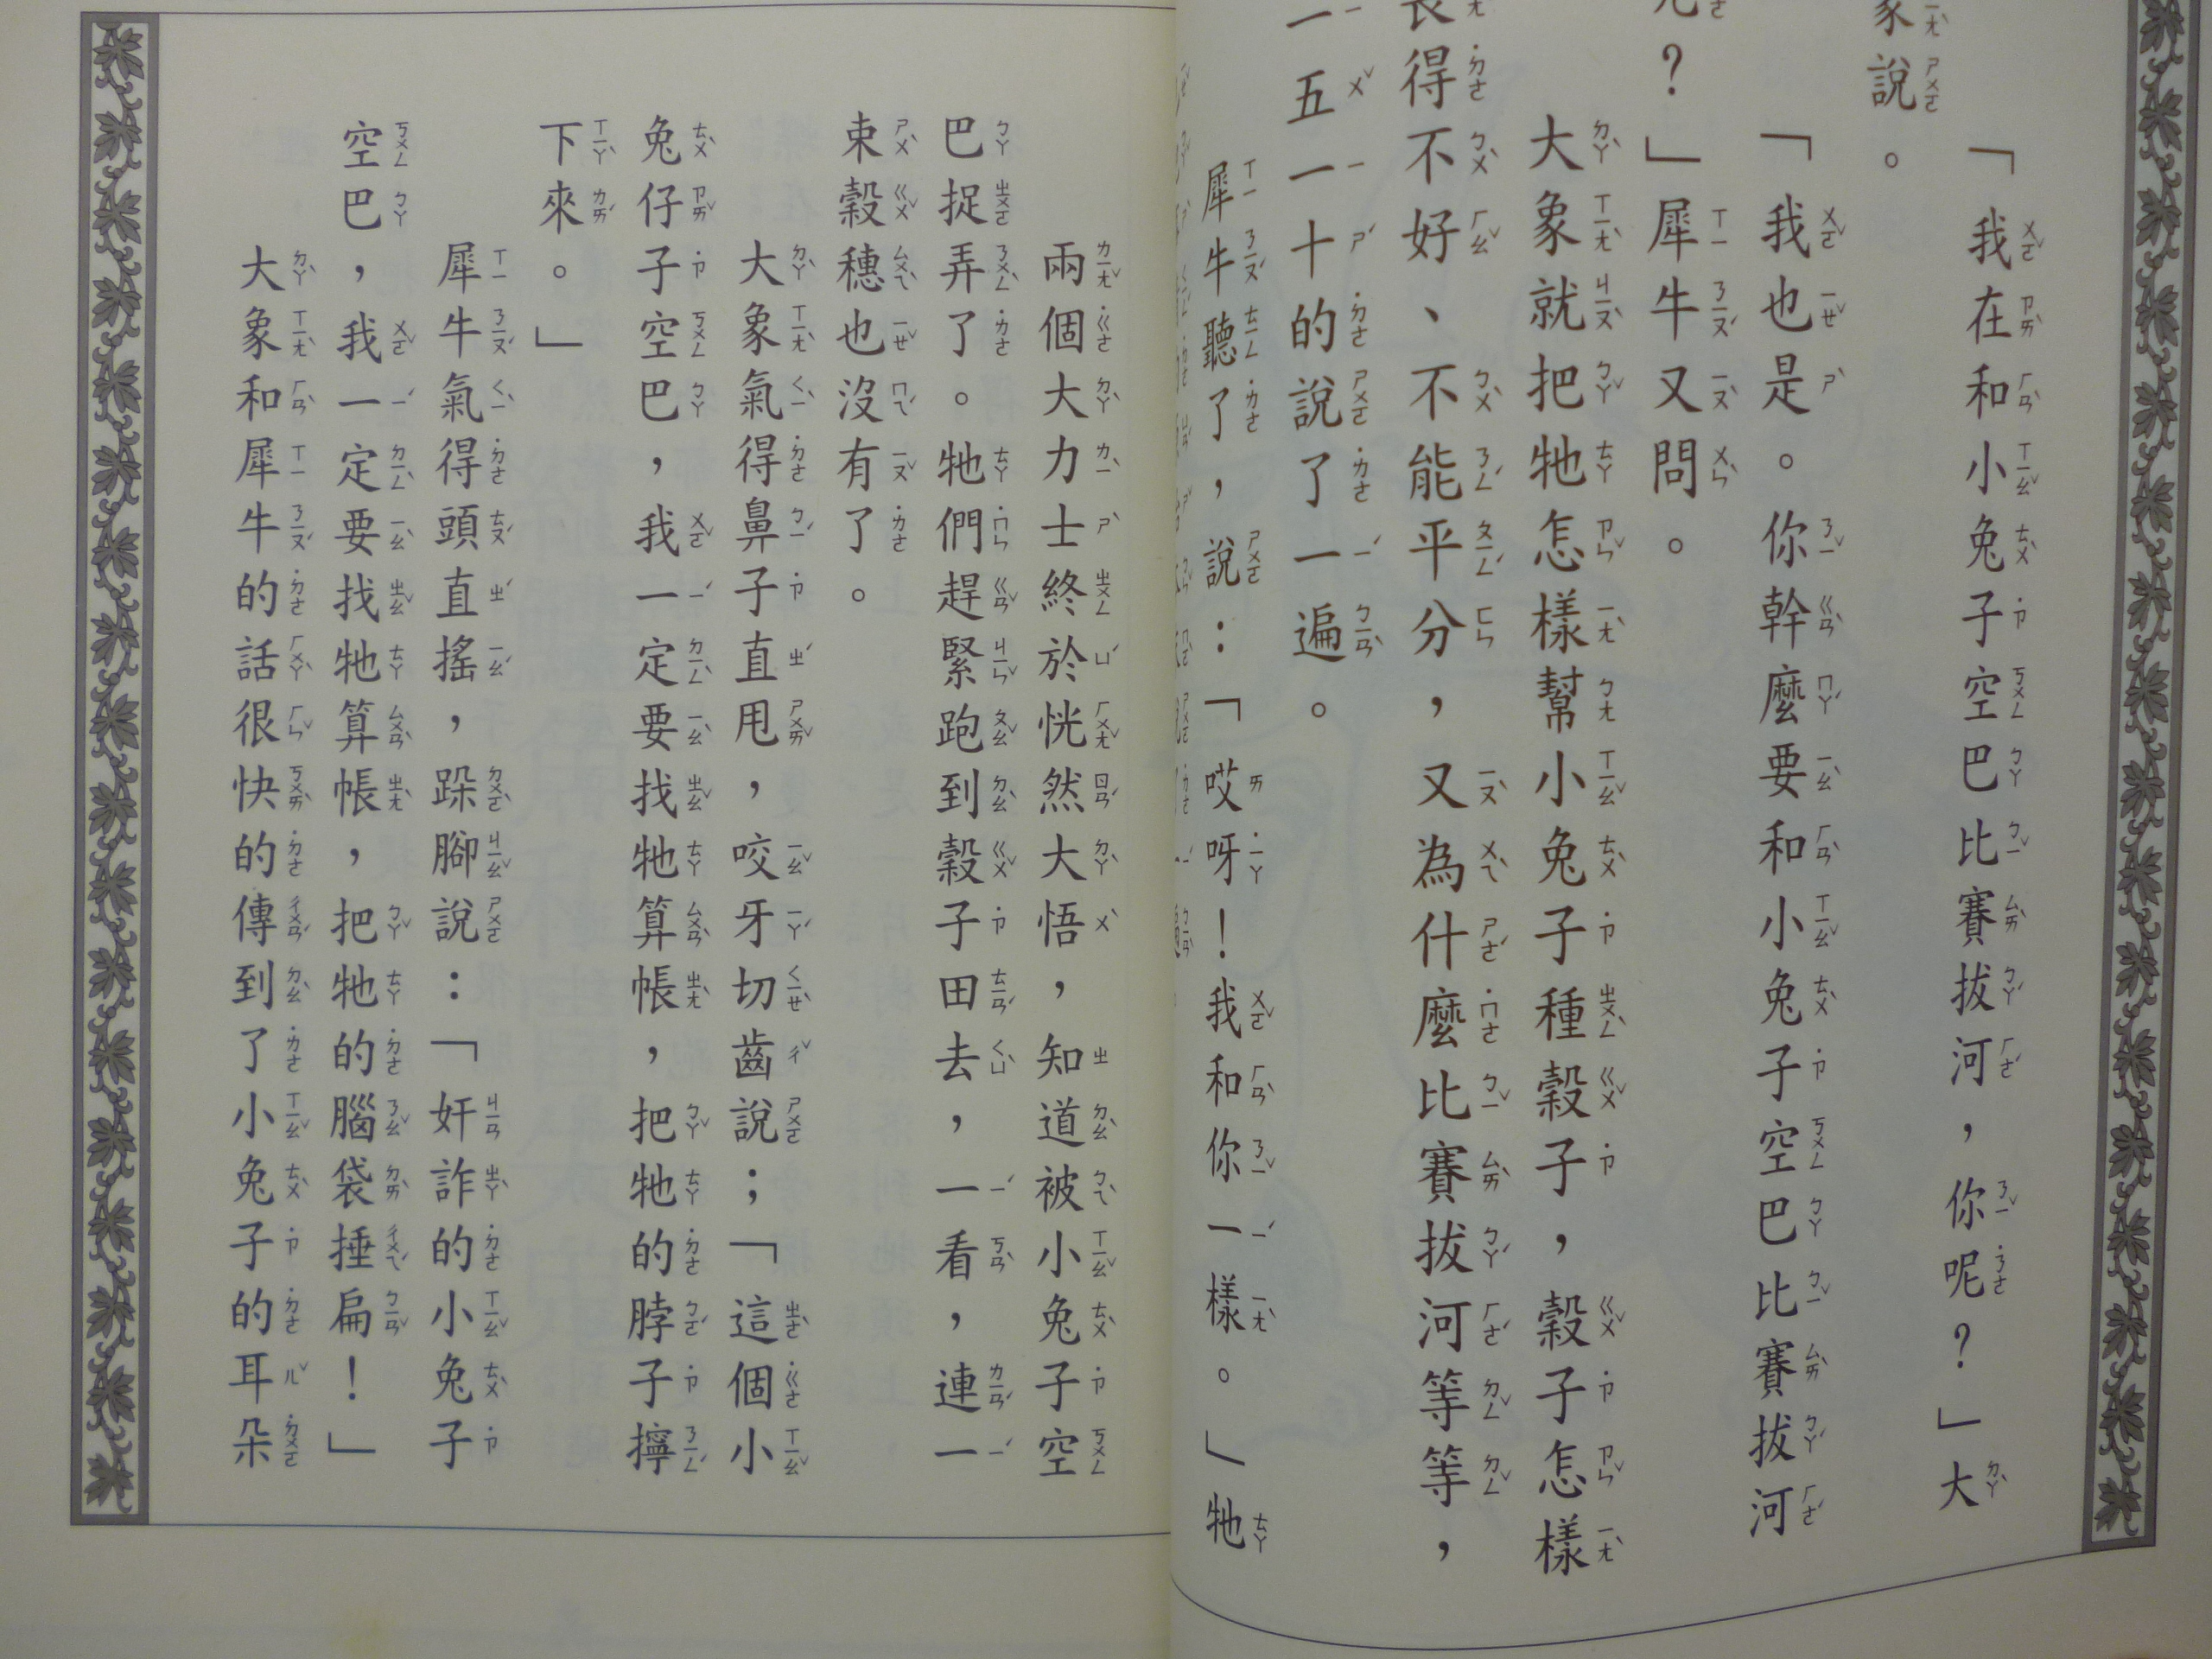 「我在和小兔子空巴比賽拔河，你呢？」大
象說。
「我也是。你幹麼要和小兔子空巴比賽拔河
？」犀牛又問。
大象就把牠怎樣幫小兔子種穀子，穀子怎樣
長得不好、不能平分，又為什麼比賽拔河等等，
一五一十的說了一遍。
犀牛聽了，說：「哎呀！我和你一樣。」牠
兩個大力士終於恍然大悟，知道被小兔子空
巴捉弄了。牠們趕緊跑到穀子田去，一看，連一
束穀穗也沒有了。
大象氣得鼻子直甩，咬牙切齒說；「這個小
兔仔子空巴，我一定要找牠算帳，把牠的脖子擰
下來。」
犀牛氣得頭直搖，跺腳說：「奸詐的小兔子
空巴，我一定要找牠算帳，把牠的腦袋捶扁！」
大象和犀牛的話很快的傳到了小兔子的耳朵